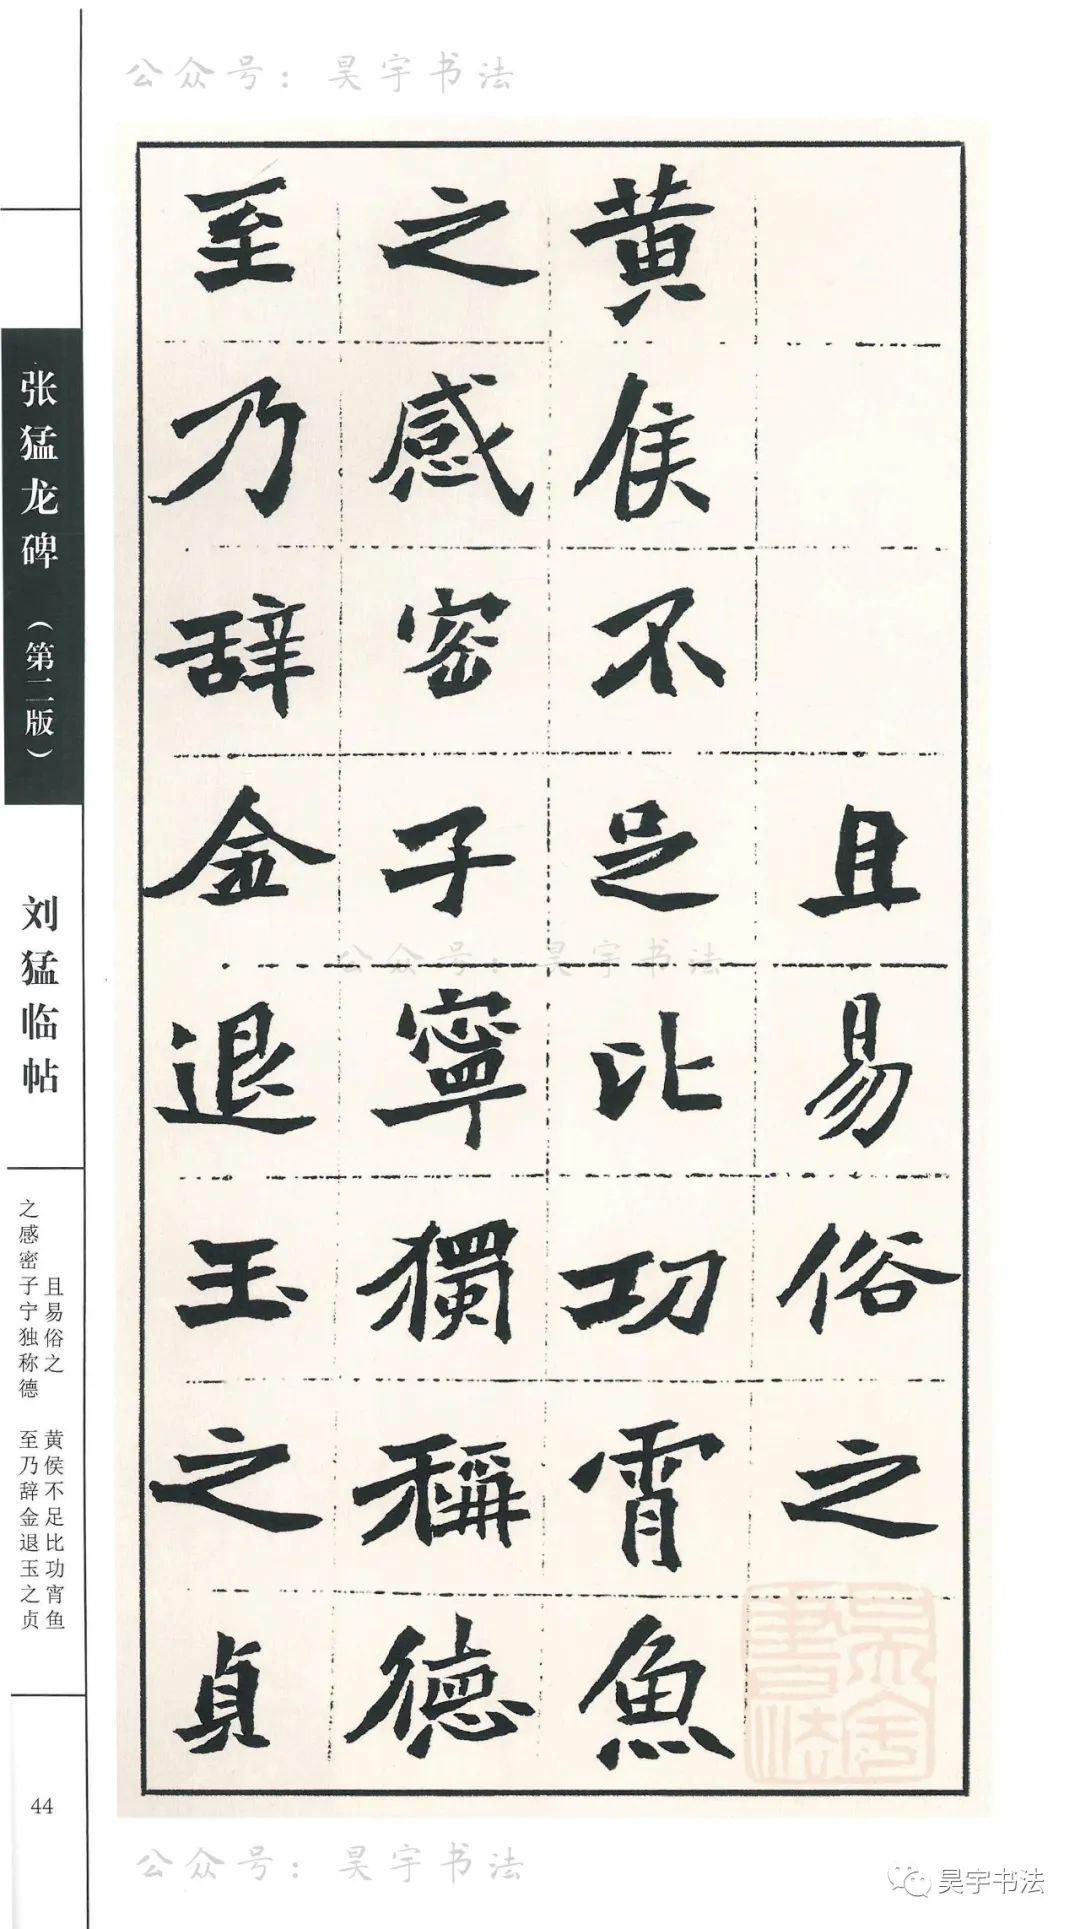 公众号：昊宇书法
且易俗之
黄侯不足比功霄魚
之感密子寧獨稱德
至乃辞金退玉之貞
公众号：昊宇书法
昊宇書法
张猛龙碑（第二版）
刘猛临帖
且易俗之　黄侯不足比功宵鱼
之感密子宁独称德　至乃辞金退玉之贞
44
公众号：昊宇书法
昊宇书法